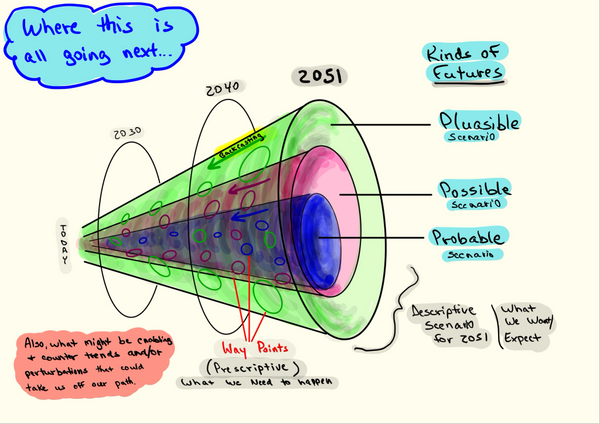 Where this is
all going next...
2051
2040
2030
Kinds of
Futures
Backcasting
Pluasible
Scenario
Possible
Scenario
Probable
Scenario
TODAY
Descriptive
Scenario
for 2051
What
We Want/
Expect
Way Points
(Prescriptive)
What we Need to happen
Also, what might be enabling
+ counter trends and/or
perturbations that could
take us off our path.